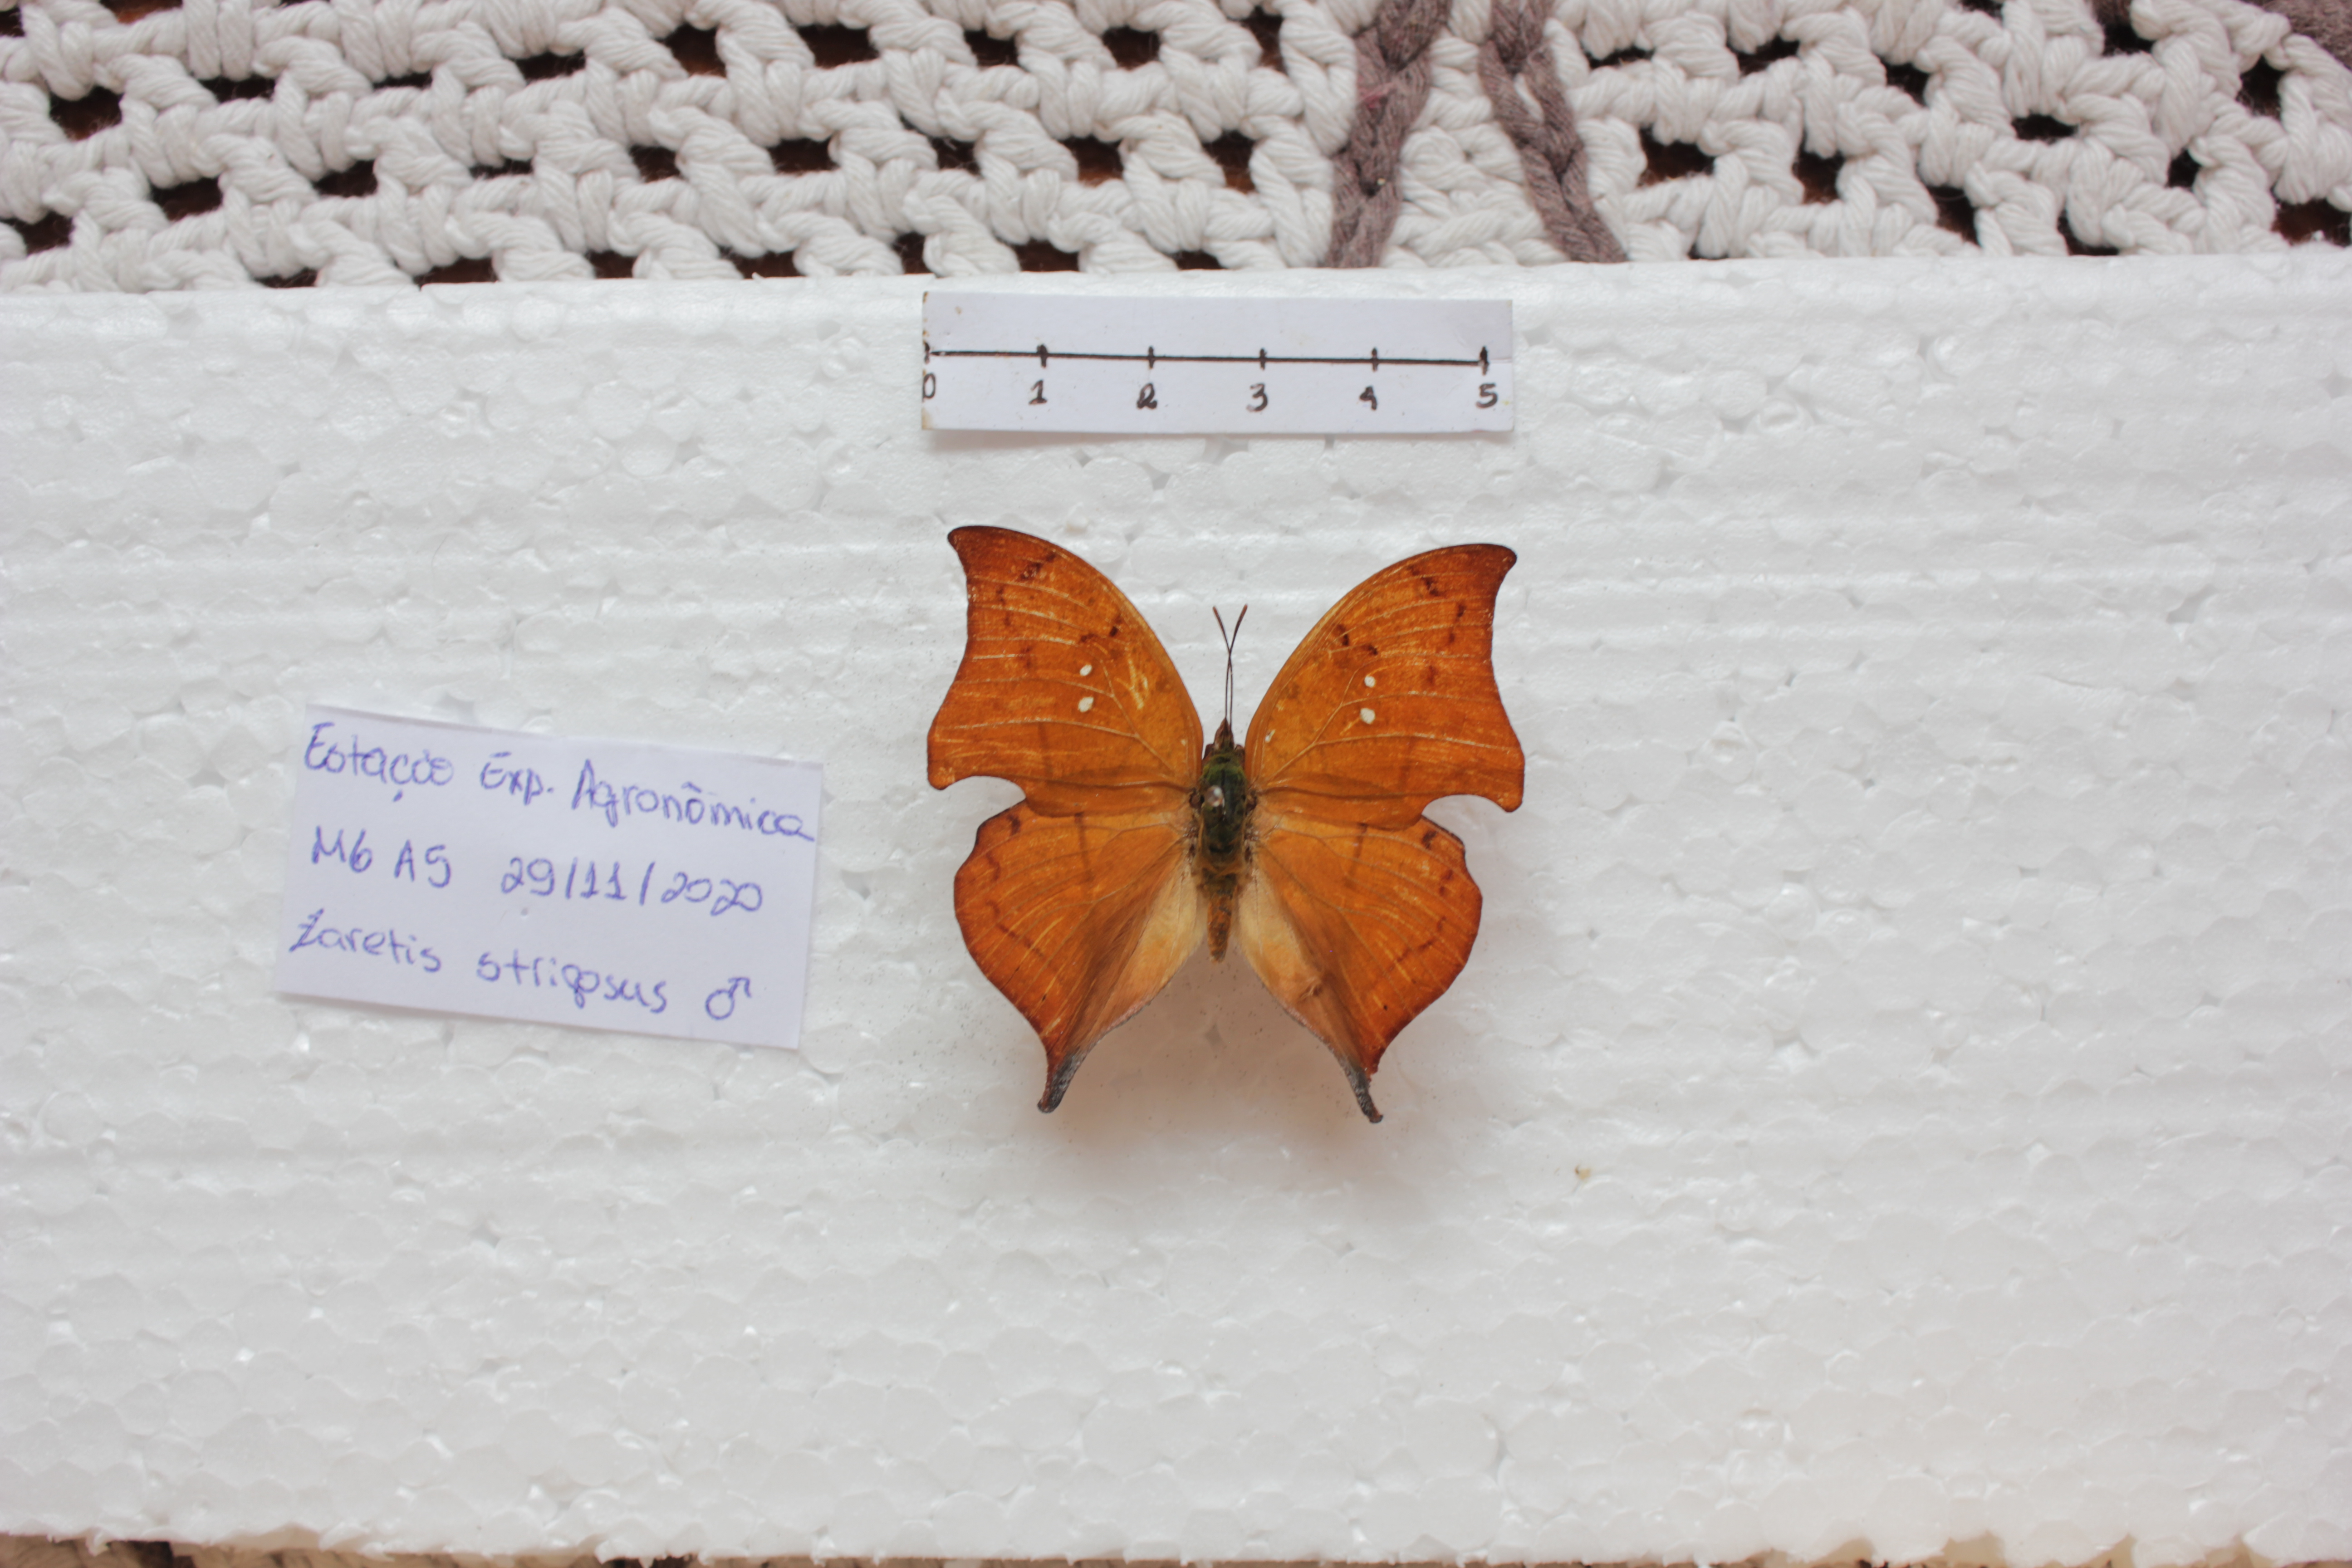 0 1 2 3 4 5
Estação Exp. Agronômica
M6 A5 29/11/2020
Zaretis strigosus ♂